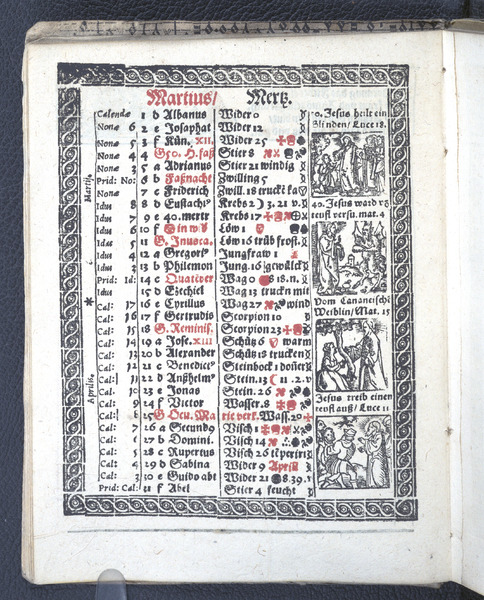 Martius/ Mertz.
Calendæ 1 d Albanus Wider 0
Nonæ 6 2 e Josaphat Wider 12
Nonæ 5 3 f Kün. XII. Wider 25
Nonæ 4 4 G 50. H. fast Stier 8
Nonæ 3 5 a Adrianus Stier 21 windig
Prid: No: 6 b Faßnacht Zwilling 5
Nonæ 7 c Friderich Zwill. 18
Idus 8 8 d Eustachi Krebs 2 ) 3. 21 v.
Idus 7 9 e 40. mertr Krebs 17
Idus 6 10 f Löw 1
Idus 5 11 G. Invoca. Löw 16 trüb frost.
Idus 4 12 a Gregori Jungfraw 1
Idus 3 13 b Philemon Jung. 16 gewülck
Prid: Id: 14 c Quatēber Wag 0 18. n.
Idus 15 d Ezechiel Wag 13 trucken mit
Cal: 17 16 e Cyrillus Wag 27 wind
Cal: 16 17 f Gertrudis Scorpion 10
Cal: 15 18 G. Reminis. Scorpion 23
Cal: 14 19 a Jose. XIII Schütz 6 warm
Cal: 13 20 b Alexander Schütz 18 trucken
Cal: 12 21 c Benedict Steinbock 1
Cal: 11 22 d Anßhelm Stein. 13 ( 11 . 2. v
Cal: 10 23 e Jonas Stein. 26
Cal: 9 24 f Victor Wasser. 8
Cal: 8 25 G Ocu. Ma rie verk. Wass. 20
Cal: 7 26 a Visch 1
Cal: 6 27 b Domini. Visch 14
Cal: 5 28 c Rupertus Visch 26
Cal: 4 29 d Sabina Wider 9 Aprill
Cal: 3 30 e Guido abt Wider 21 8. 39. v
Prid: Cal: 31 f Abel Stier 4 feucht
Martij.
Aprilis.
Jesus heilt ein
Blinden/ Luce 18.
40. Jesus ward vō
teufl versu. mat. 4
Vom Cananeische
Weiblin/ Mat. 15
Jesus treib einen
teufl auß/ Luce 11